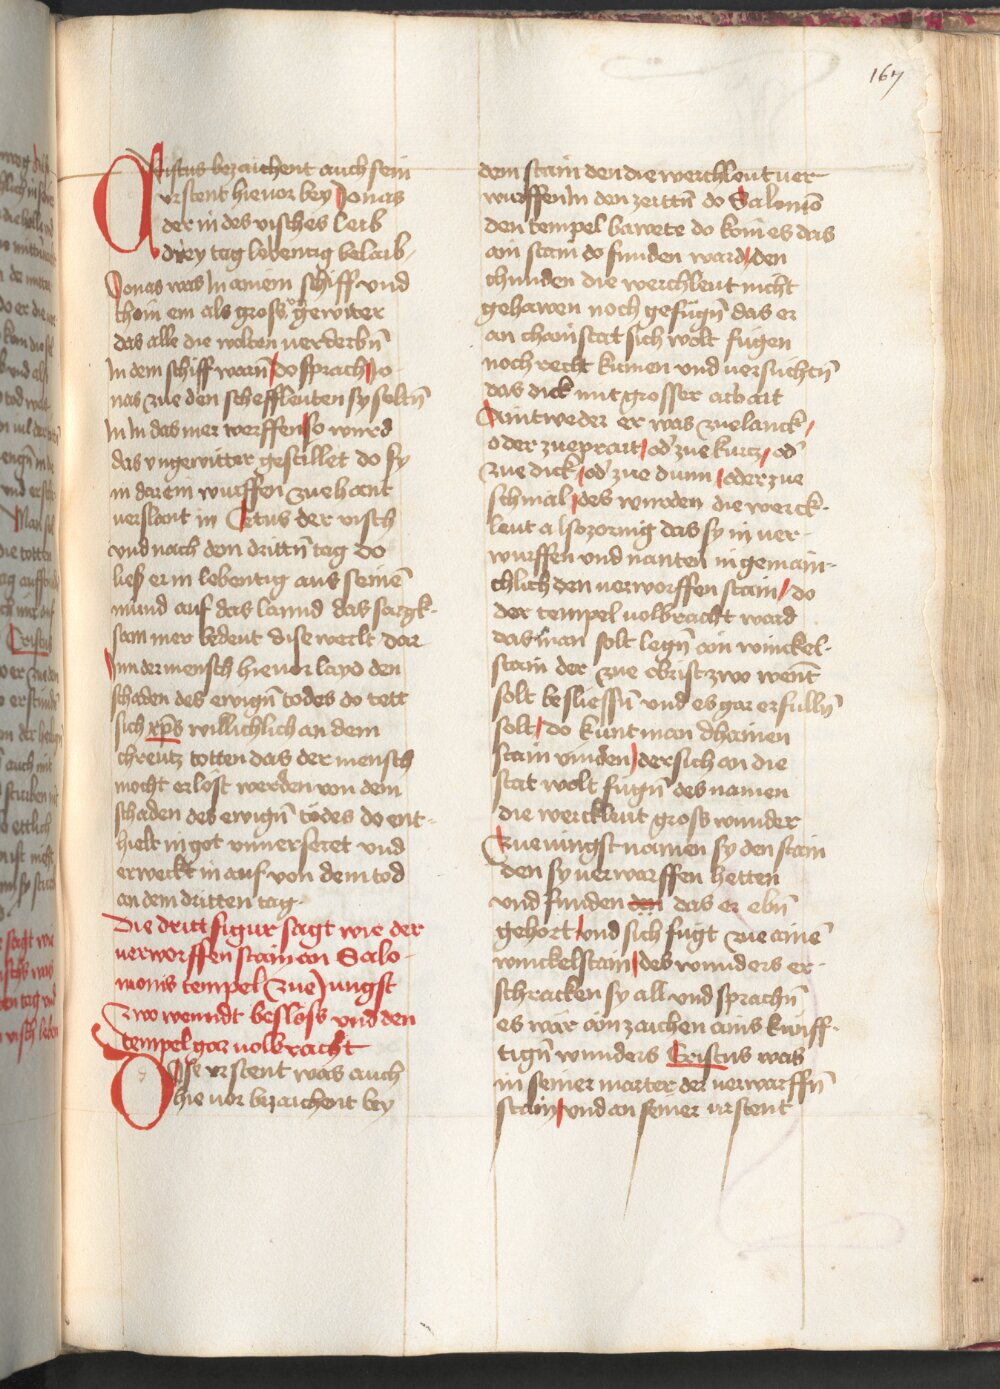 167
Cristus bezaichent auch sein
vrstent hieuor bey Jonas
der in des visches leib
drey tag lebentig belaib
Jonas was In ainem schiff vnd
cham em als gross gewiter
das alle die wolten verderbñ
In dem schiff warñ / do sprach Jo
nas zue den scheffleuten sy soltñ
In In das mer werffen / so wurd
das vngewitter gestillet do sy
in darein wurffen zuehant
verslant in Cetus der visch
vnd nach dem drittñ tag do
lies er in lebentig aus seinē
mund auf das lannd das sorgk-
sam mer bedeut dise werlt dar
Inn der mensch hieuor layd den
schaden des ewigñ todes do lett
sich xp̄s willichlich an dem
chreutz totten das der mensch
mocht erlöst werden von dem
schaden des ewigñ todes do ent-
hielt in got vnuerseret vnd
erweckt in auf von dem tod
an dem dritten tag
Die dritt figur sagt wie der
verworffen stain an Salo-
monis tempel zue Jungst
zwo wenndt beslöss vnd den
tempel gar volbracht
Dise vrstent was auch
hie vor bezaichent bey
dem stain den die werchleut ver-
wurffen In den zeittñ do Salomō
den tempel bawete do kom es das
ain stain do funden ward / den
chunden die werchleut nicht
gehawen noch gefügñ das er
an chain stat sich wolt fügen
noch recht kumen vnd versuchtñ
das dick mit grosser arbait
Aintweder er was zuelanck /
oder zueprait / od̄ zue kurcz / od̄
zue dick / od̄ zue dunn / oder zue
schmal / des wurden die werck-
leut also zornig das sy in ver-
wurffen vnd nanten in gemain-
chlich den verworffen stain / do
der tempel volbracht ward
das man solt legñ ain winckel-
stain der zue obrist zwo went
solt besliessñ vnd es gar erfullñ
solt / do kunt man dhainen
stain vinden / der sich an die
stat wolt fügñ des namen
die werckleut gross wunder
Zue iungst namen sy den stain
den sy verwarffen hetten
vnd funden das er ebñ
gehort / vnd sich fugt zue ainē
winckelstain / des wunders er-
schracken sy all vnd sprachñ
es wär ain zaichen ains kunff-
tigñ wunders Cristus was
in seiner marter der verwarffñ
stain / vnd an seiner vrstent